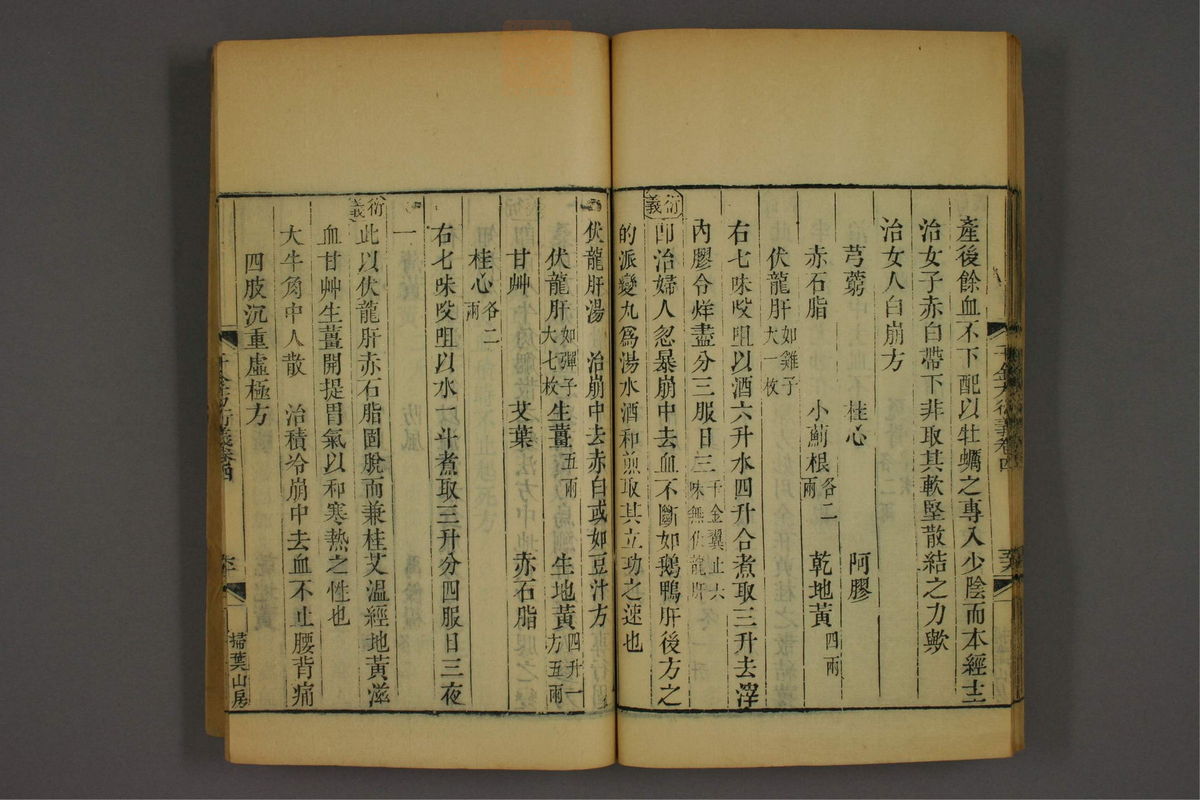 產後餘血不下配以牡蠣之專入少陰而本經主
治女子赤白帶下非取其軟堅散結之力歟
治女人白崩方
芎藭 桂心 阿膠
赤石脂 小薊根各二兩 乾地黃四兩
伏龍肝如雞子大一枚
右七味㕮咀以酒六升水四升合煮取三升去滓
內膠令烊盡分三服日三千金翼止六味無伏龍肝
衍義卽治婦人忽暴崩中去血不斷如鵝鴨肝後方之
的派變九爲湯水酒和煎取其立功之速也
伏龍肝湯 治崩中去赤白或如豆汁方
伏龍肝如彈子大七枚 生薑五兩 生地黃四升一方五兩
甘艸 艾葉 赤石脂
桂心各二兩
右七味㕮咀以水一斗煮取三升分四服日三夜
一
衍義此以伏龍肝赤石脂固脫而兼桂艾溫經地黃滋
血甘艸生薑開提胃氣以和寒熱之性也
大牛角中人散 治積冷崩中去血不止腰背痛
四肢沉重虛極方
千金方衍義卷四
掃葉山房